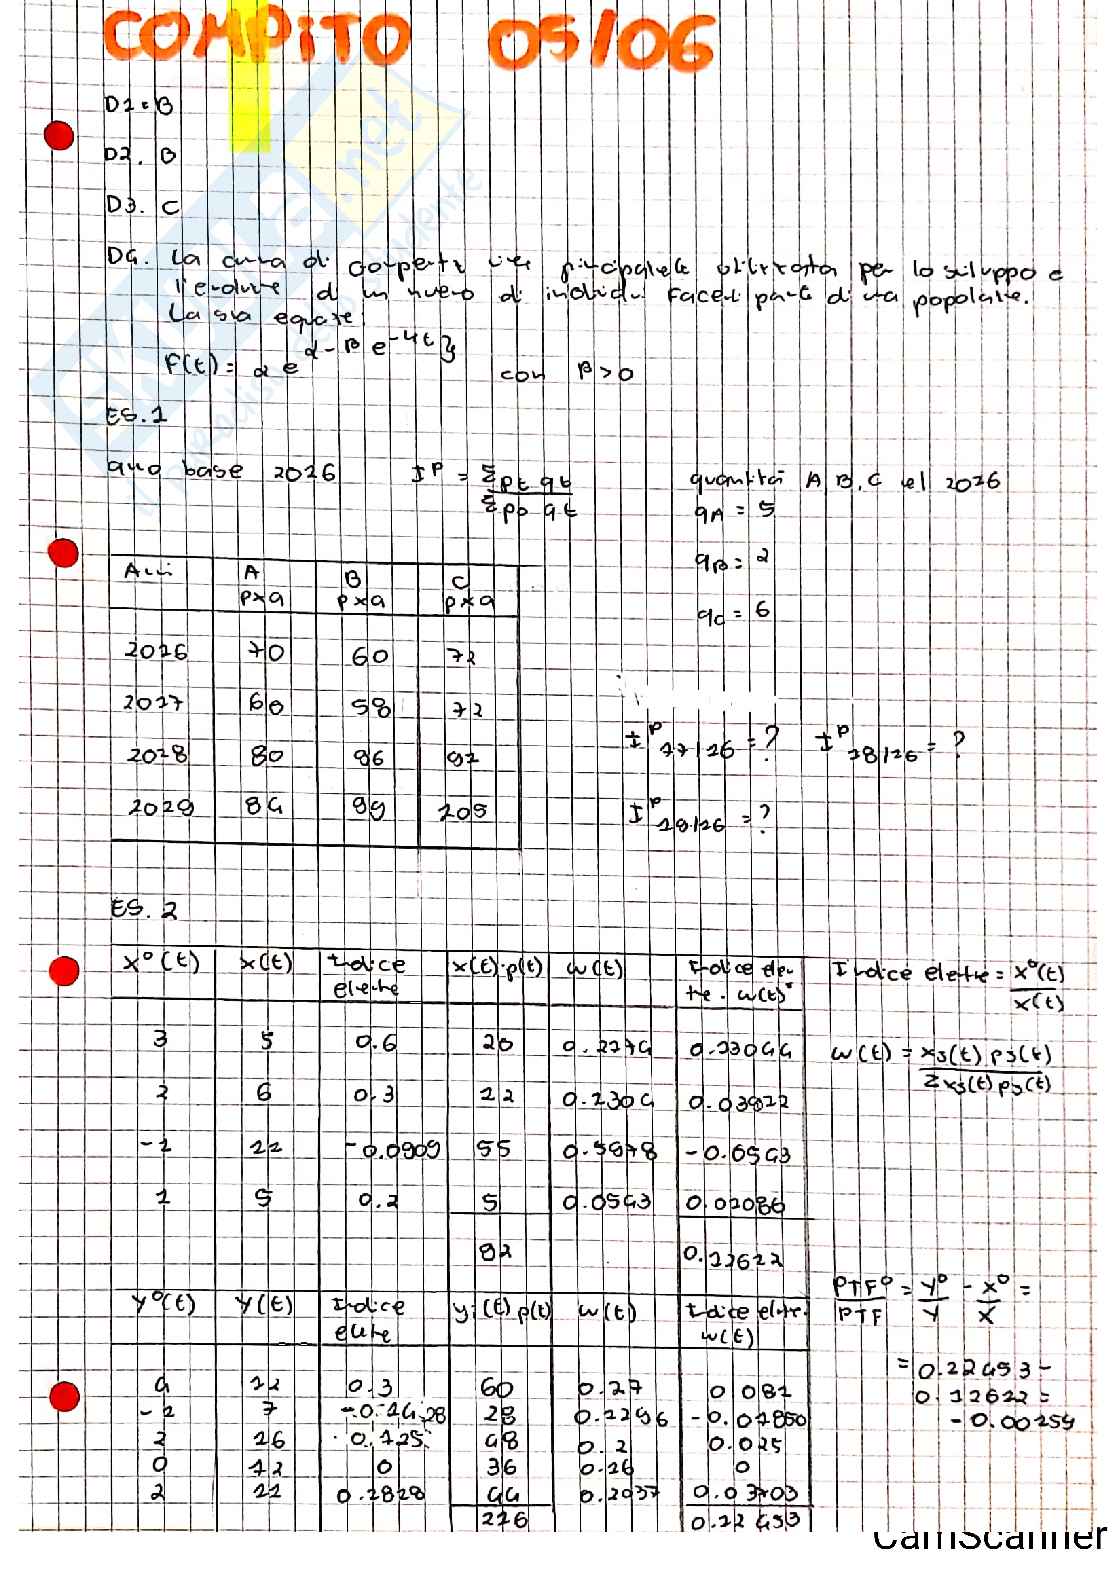 COMPITO 05/06
D1. B
D2. B
D3. C
D4. La curva di Gompertz viene principalmente utilizzata per lo sviluppo e
di un numero di individui facenti parte di una popolazione.
La sua equazione
F(t) = α e^{α - β e^{-ut}}
con β > 0
ES. 1
anno base 2016 I^P = Σ pt qt / Σ pb qt
quantità A, B, C nel 2016
qA = 5
qB = 2
qC = 6
Anni A p×q B p×q C p×q
2016 70 60 72
2017 60 58 72
2018 80 96 92
2019 84 99 105
I^P 17/16 = ? I^P 18/16 = ?
I^P 19/16 = ?
ES. 2
X°(t) X(t) Indice elem.te x(t)·p(t) w(t) Indice elem.te · w(t)
3 5 0.6 20 0.2174 0.13044
2 6 0.3 22 0.2304 0.03922
-1 11 -0.0909 55 0.5978 -0.0543
1 5 0.2 5 0.0543 0.01086
92 0.12622
Indice elem.te = X°(t) / X(t)
w(t) = xj(t) pj(t) / Σ xj(t) pj(t)
Y°(t) Y(t) Indice elem.te yi(t) p(t) w(t) Indice elem.te w(t)
4 12 0.3 60 0.27 0.081
-1 7 -0.1428 28 0.1296 -0.01850
2 16 0.125 48 0.2 0.025
0 12 0 36 0.16 0
2 11 0.1818 44 0.2037 0.03703
216 0.12453
PTF° / PTF = Y° / Y - X° / X =
= 0.12453 -
0.12622 =
- 0.00254
CamScanner